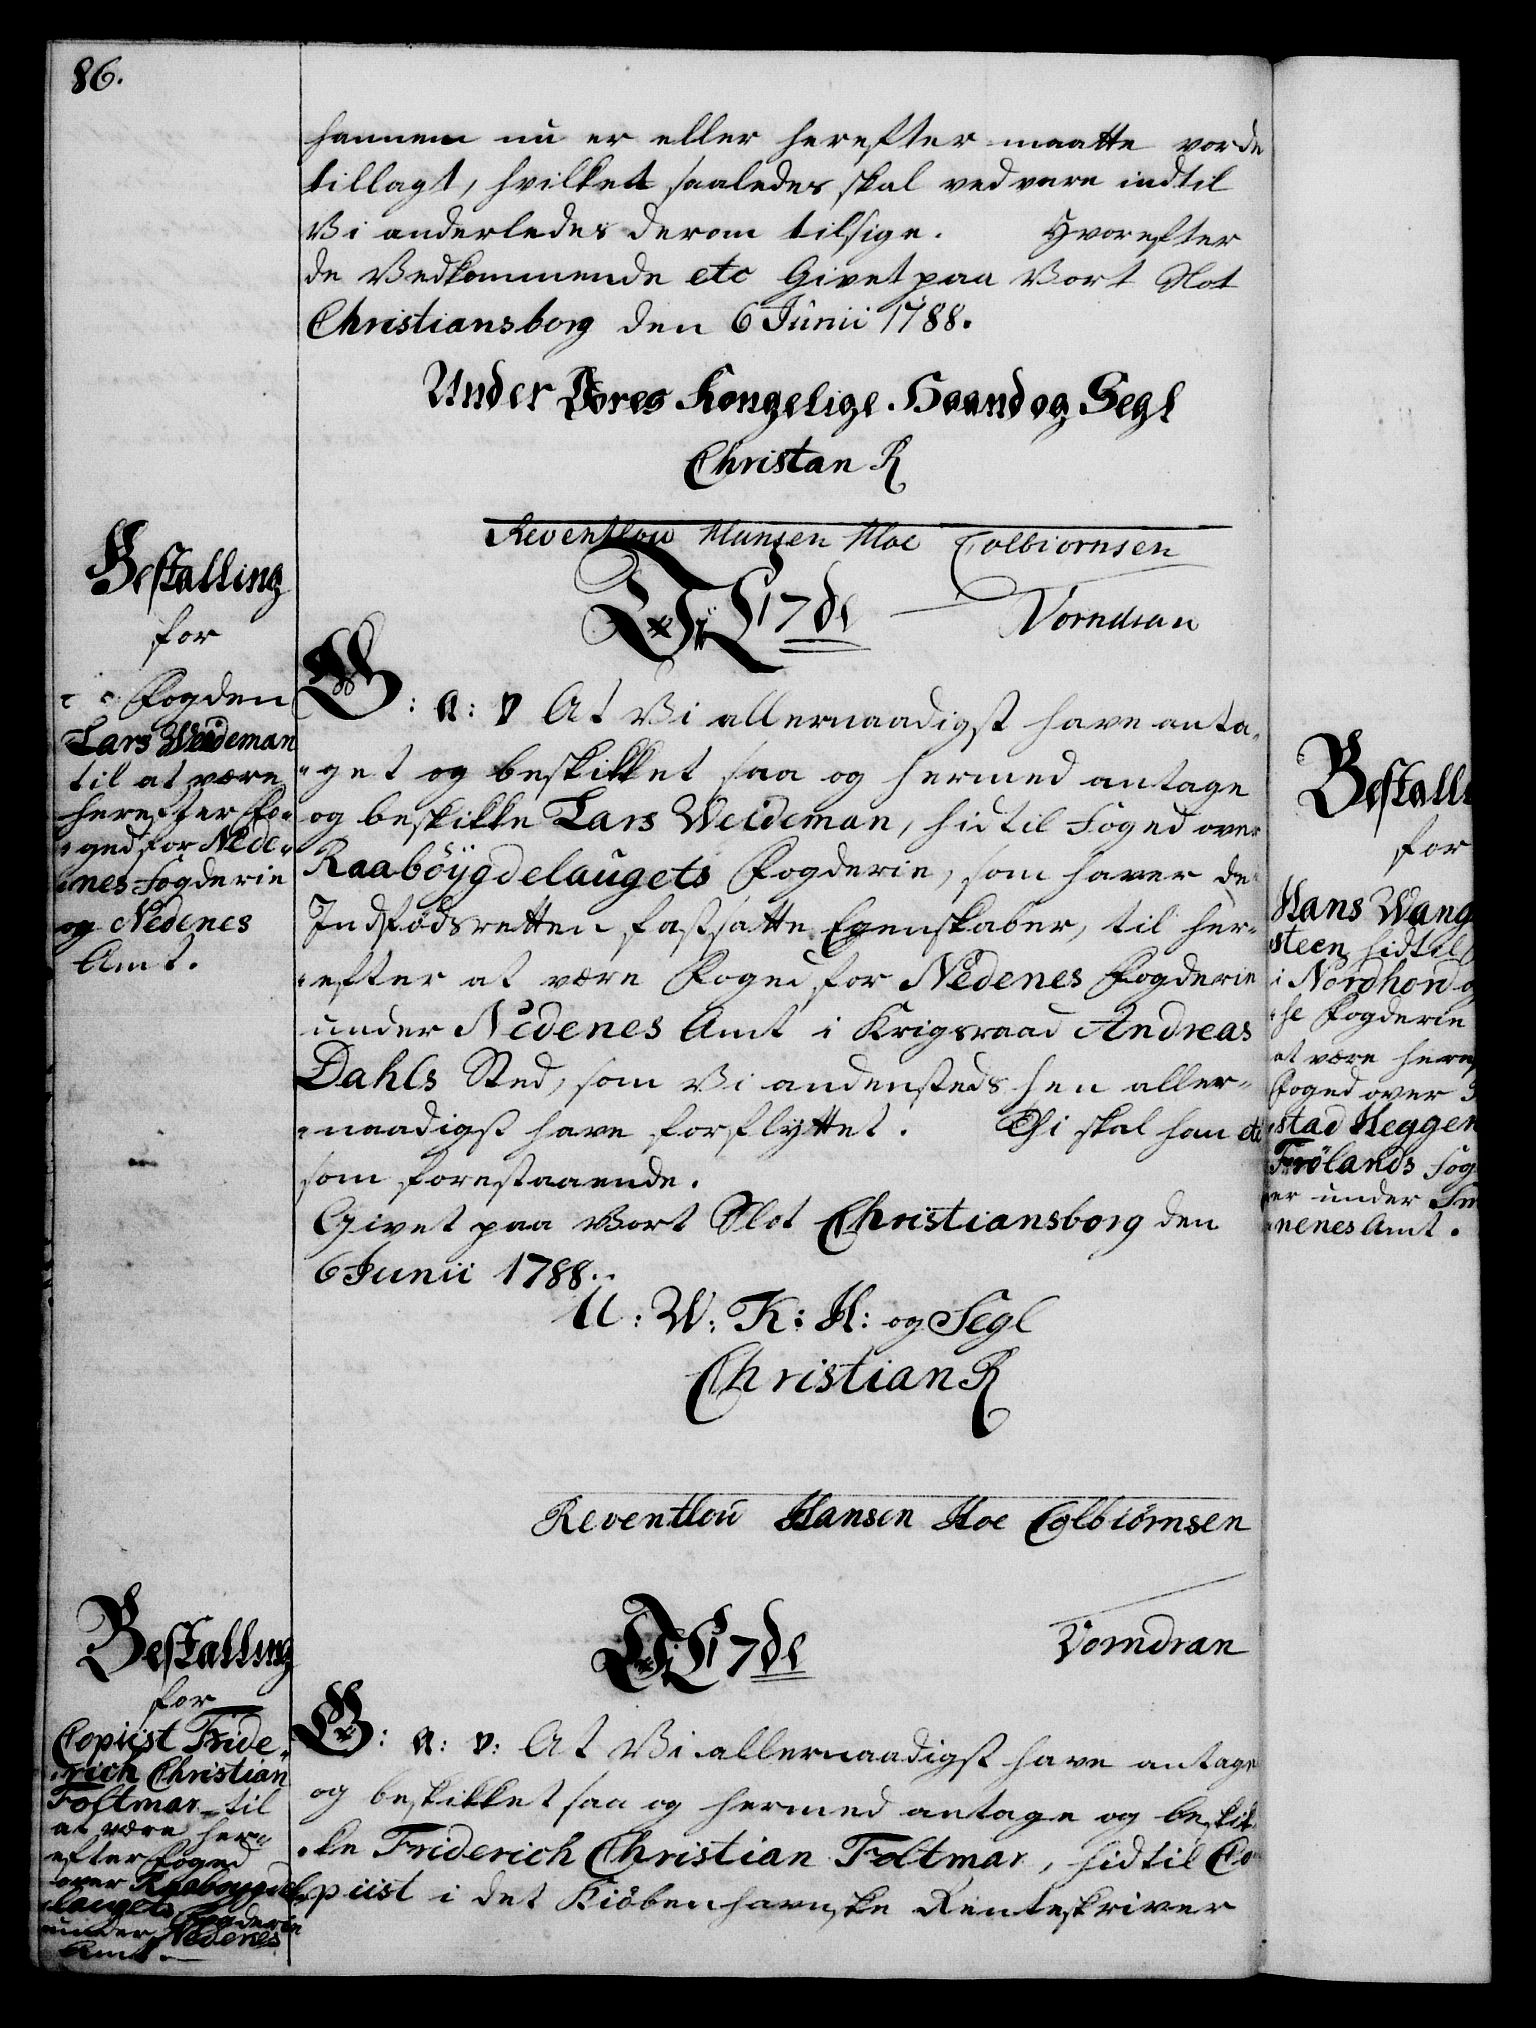 86.
hannem nu er eller herefter maatte vorde
tillagt, hvilket saaledes skal vedvare indtil
Vi anderledes derom tilsige. Hvorefter
de Vedkommende etc Givet paa Vort Slot
Christiansborg den 6 Junii 1788.
Under Vores Kongelige Haand og Segl
Christan R
Reventlow Hansen Hoe Colbiornsen
Vorndran
17de
Bestalling
for
Fogden
Lars Weideman
til at være
herefter Fo-
-ged for Nede-
-nes Fogderie
og Nedenes
Amt.
G: A: V At Vi allernaadigst have anta-
-get og beskikket saa og hermed antage
og beskikke Lars Weideman, hidtil Foged over
Raabøygdelaugets Fogderie, som haver de
Indfødsretten fastsatte Egenskaber, til her-
-efter at være Foged for Nedenes Fogderie
under Nedenes Amt i Krigsraad Andreas
Dahls Sted, som Vi andensteds hen aller-
-naadigst have forflyttet. Thi skal han etc
som forestaaende.
Givet paa Vort Slot Christiansborg den
6 Junii 1788.
U: W: K: H: og Segl
Christian R
Reventlou Hansen Hoe Colbiørnsen
Vorndran
17de
Bestalling
for
Copiist Fride-
-rich Christian
Foltmar til
at være her-
efter Foged
over Raaboygde
laugets Fogderie
under Nedenes
Amt.
G: A: V: At Vi allernaadigst have antaget
og beskikket saa og hermed antage og beskik-
-ke Friderich Christian Foltmar, hidtil Co-
-piist i det Kiøbenhavnske Renteskriver
Bestalli
for
Hans Wang
steen hidtil
i Nordhord og
-se Fogderie
at være heref
Foged over
stad Heggen
Frølands Fog
er under Sm
nenes Amt.